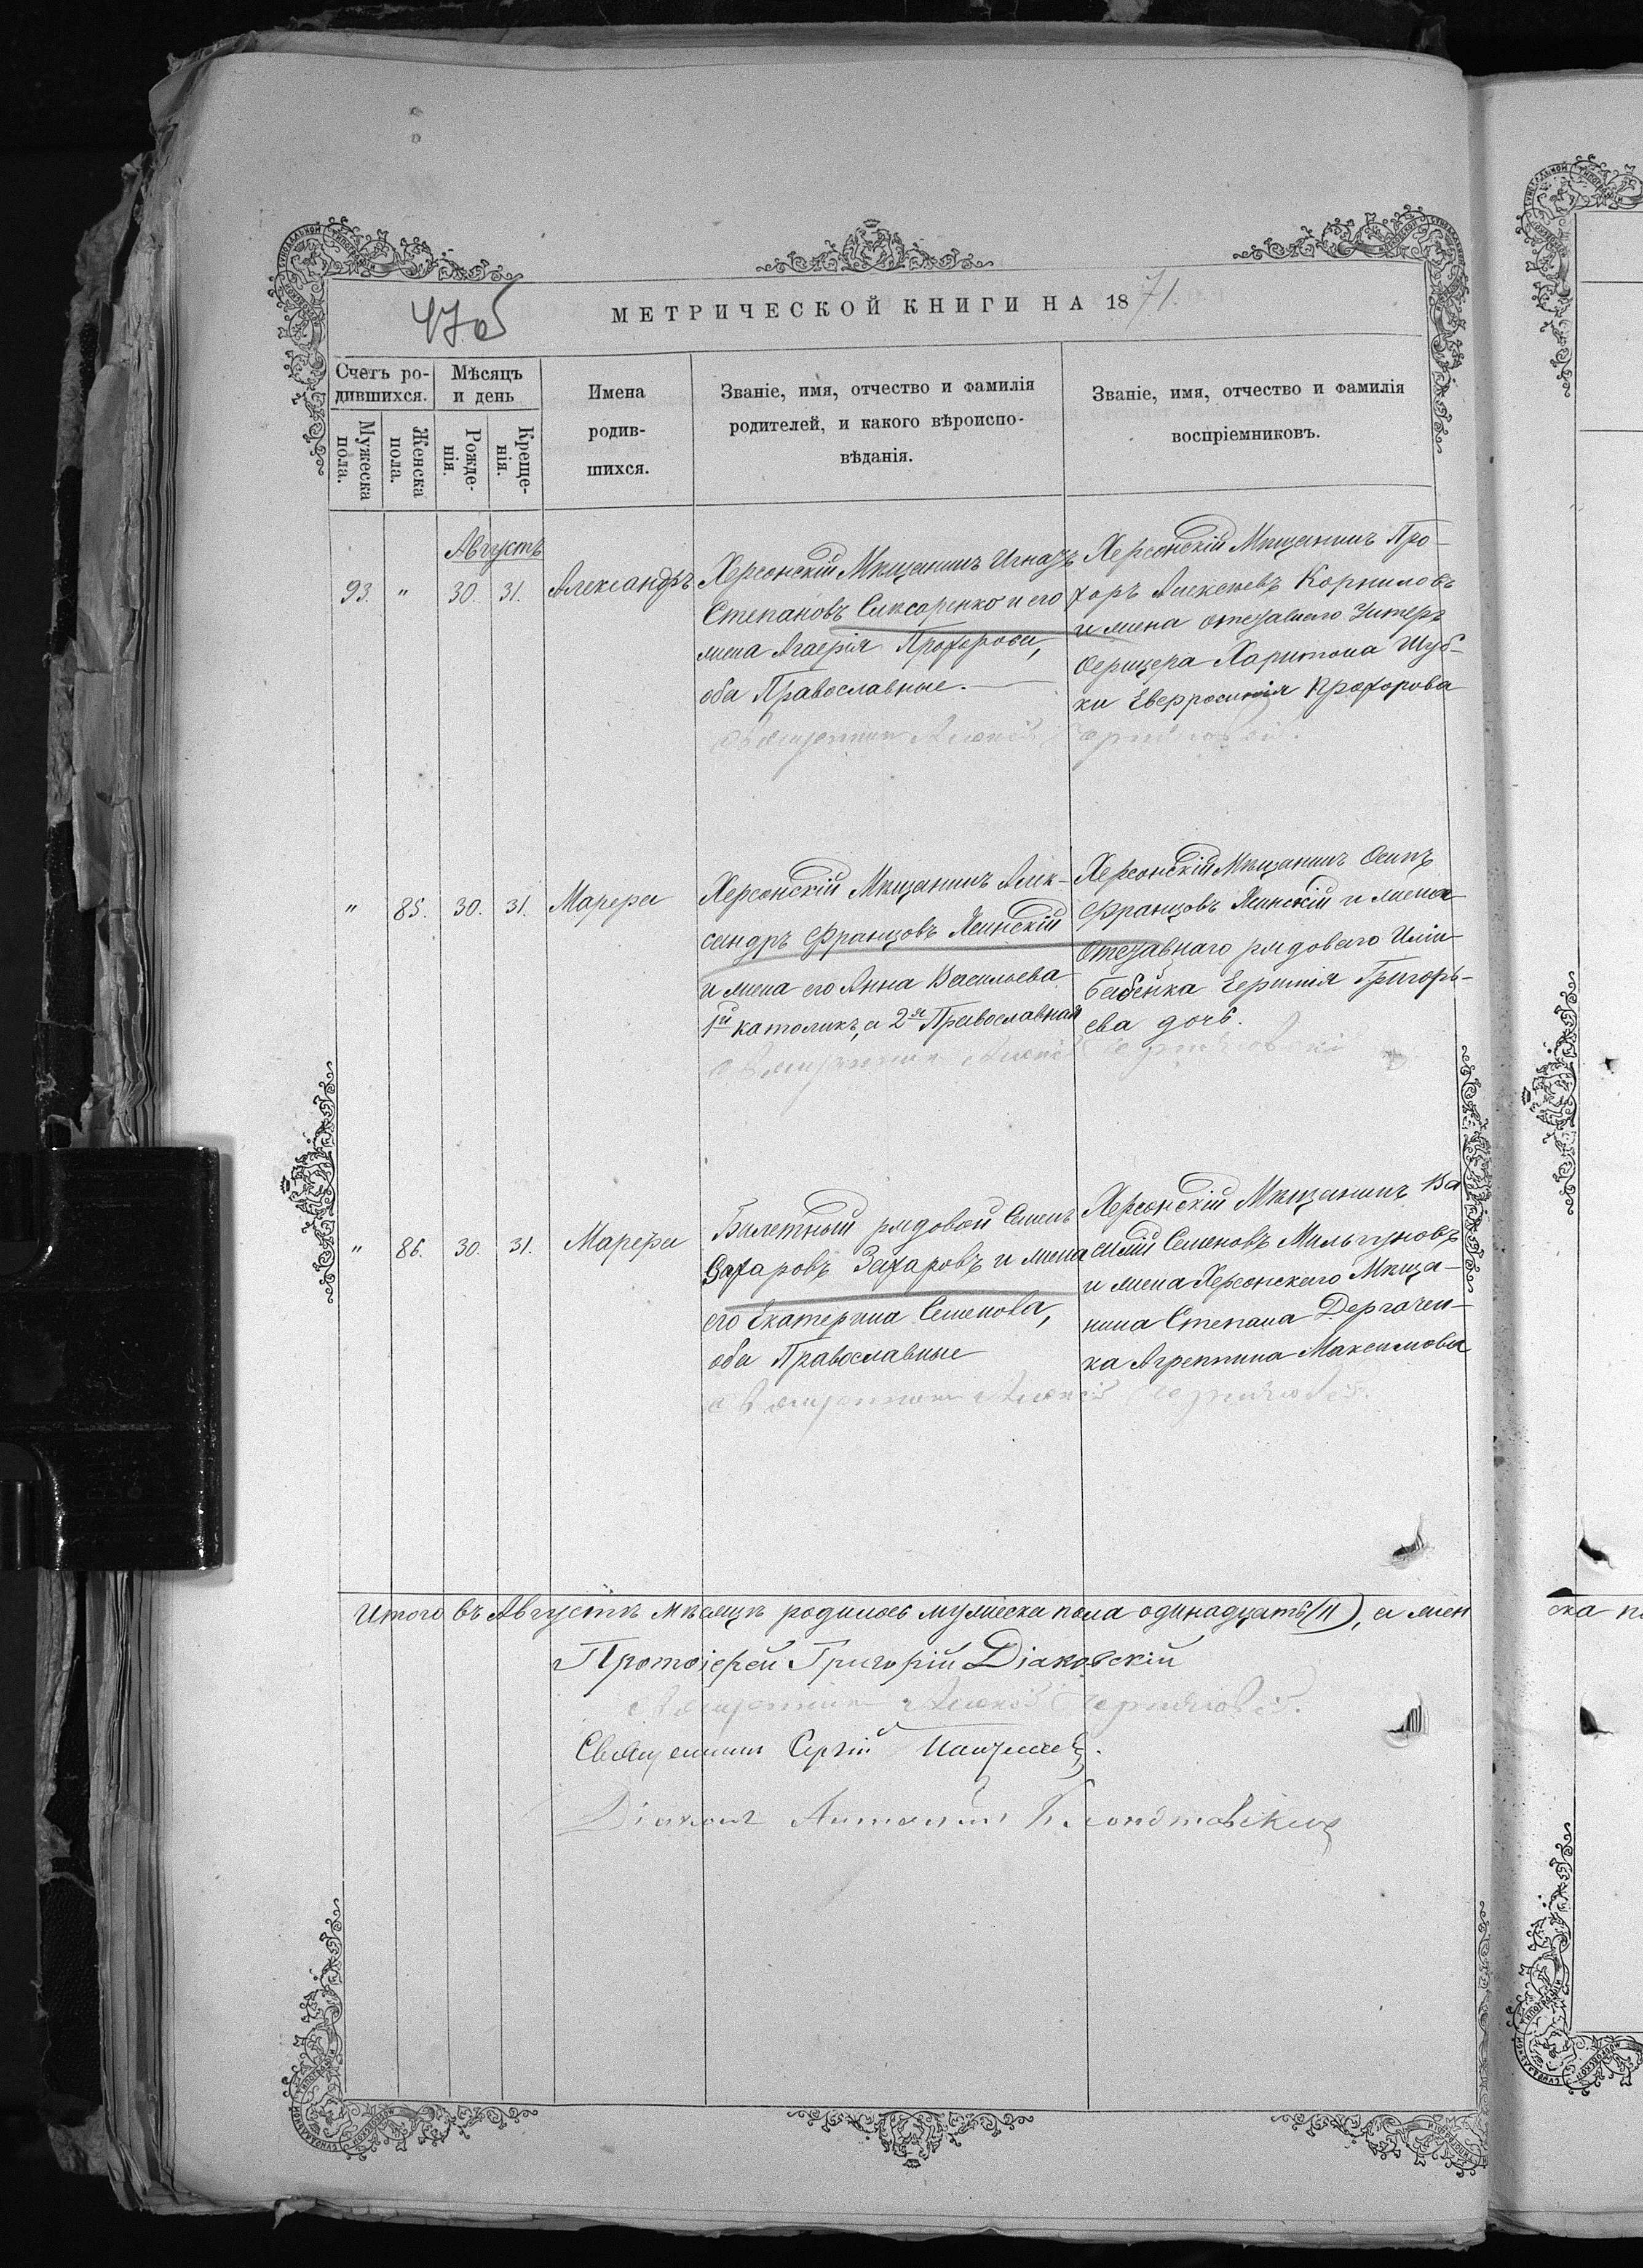 47об
МЕТРИЧЕСКОЙ КНИГИ НА 1871.
Счетъ ро-
дившихся.
Мужеска
пола.
Женска
пола.
Мѣсяцъ
и день
Рожде-
нія.
Креще-
нія.
Имена
родив-
шихся.
Званіе, имя, отчество и фамилія
родителей, и какого вѣроиспо-
вѣданія.
Званіе, имя, отчество и фамилія
воспріемниковъ.
Августъ
93. " 30. 31. Александръ
Херсонскій Мѣщанинъ Игнатъ
Степановъ Слюсаренко и его
жена Агафія Прохорова,
оба Православные.
Священникъ Алексій
Херсонскій Мѣщанинъ Про-
хоръ Алексѣевъ Корниловъ
и жена отставнаго Унтеръ
Офицера Харитона Шуб-
ки Евфросинія Прохорова
" 85. 30. 31. Марѳа
Херсонскій Мѣщанинъ Алек-
сандръ Францовъ Ясинскій
и жена его Анна Васильева
1й католикъ, а 2я Православная
Священникъ Алексій
Херсонскій Мѣщанинъ Осипъ
Францовъ Ясинскій и жена
Отставнаго рядоваго Иліи
Бабенка Григорь-
ева дочь.
" 86. 30. 31. Марѳа
Билетный рядовой Семенъ
Захаровъ Захаровъ и жена
его Екатерина Семенова,
оба Православные
Священникъ Алексій
Херсонскій Мѣщанинъ Ва
силій Семеновъ Мильгуновъ
и жена Херсонскаго Мѣща-
нина Степана Дергачен-
ка Агреппина Максимова
Итого въ Августѣ мѣсяцѣ родилось мужеска пола одинадцать (11), а жен
Протоіерей Григорій Діаковскій
Священникъ Алексій
Священникъ Сергій
Діаконъ
ска п